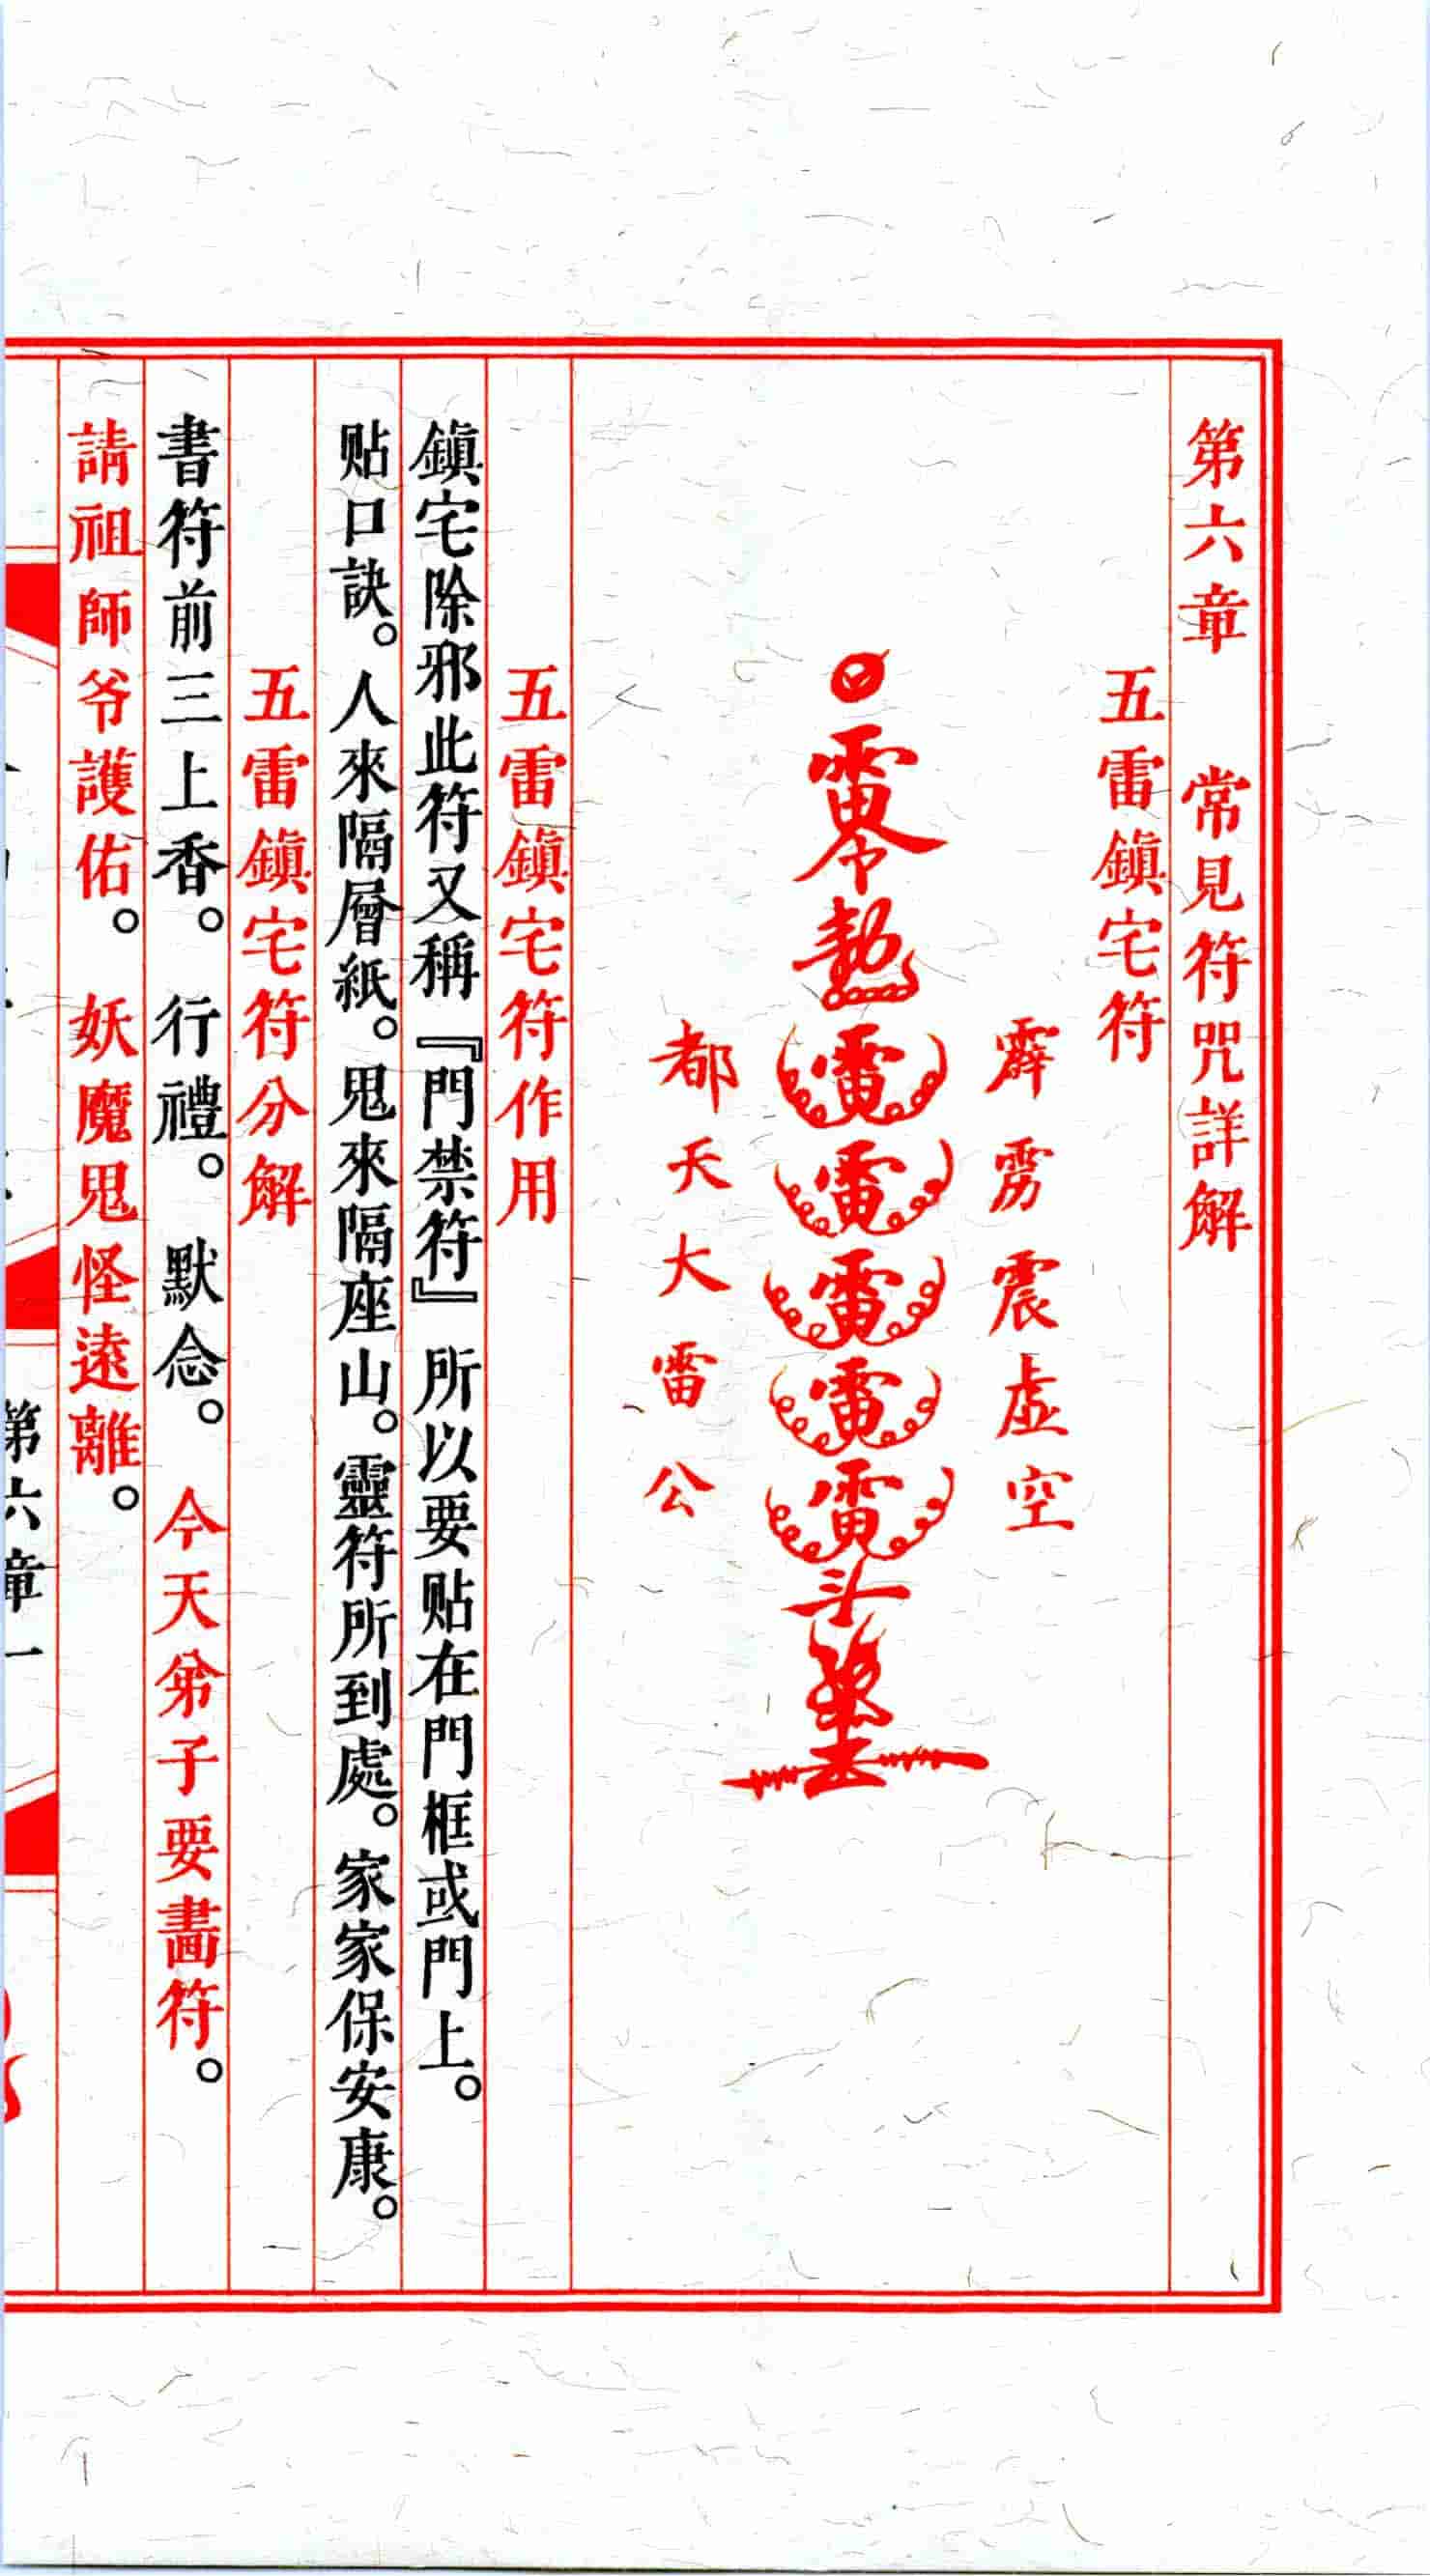 第六章 常見符咒詳解
五雷鎮宅符
霹雳震虚空
雷雷雷雷雷
都天大雷公
五雷鎮宅符作用
鎮宅除邪此符又稱『門禁符』所以要贴在門框或門上。
贴口訣。人來隔層紙。鬼來隔座山。靈符所到處。家家保安康。
五雷鎮宅符分解
書符前三上香。行禮。默念。今天弟子要畫符。
請祖師爷護佑。妖魔鬼怪遠離。
第六章一